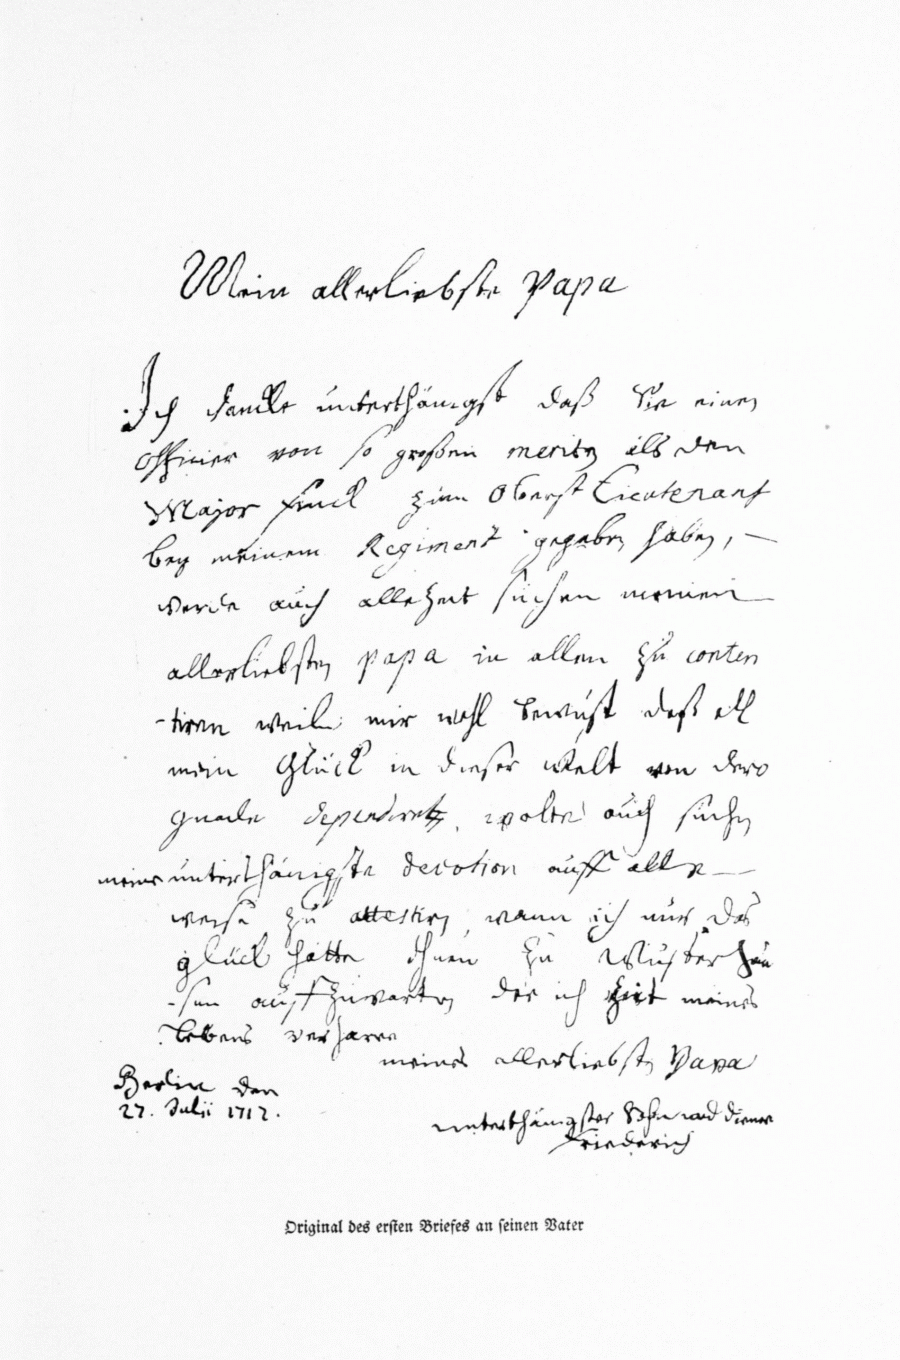 Mein allerliebste Papa
Ich dancke unterthänigst daß Sie einen
Officier von so großen meriten als den
Major Finck zum Oberst Lieutenant
bey meinem Regiment gegeben haben, —
werde auch allezeit suchen meinen —
allerliebsten Papa in allen zu conten
-tiren weilen mir wohl bewust daß all
mein Glück in dieser welt von dero
gnade dependiret, wolte auch suchen
meine unterthänigste devotion auff alle —
weise zu attestiren, wann ich nur das
glück hätte ihnen zu Wusterhau
-sen auffzuwarten der ich Zeit meines
Lebens verharre
meines allerliebsten Papa
Berlin den
27. Julii 1717.
unterthänigster Sohn und diener
Friederich
Original des ersten Briefes an seinen Vater